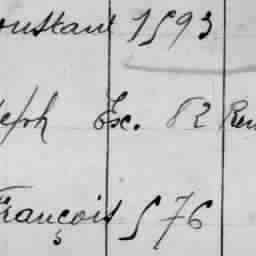 onstant 1593
eph Ex. 82 Ren
François 576